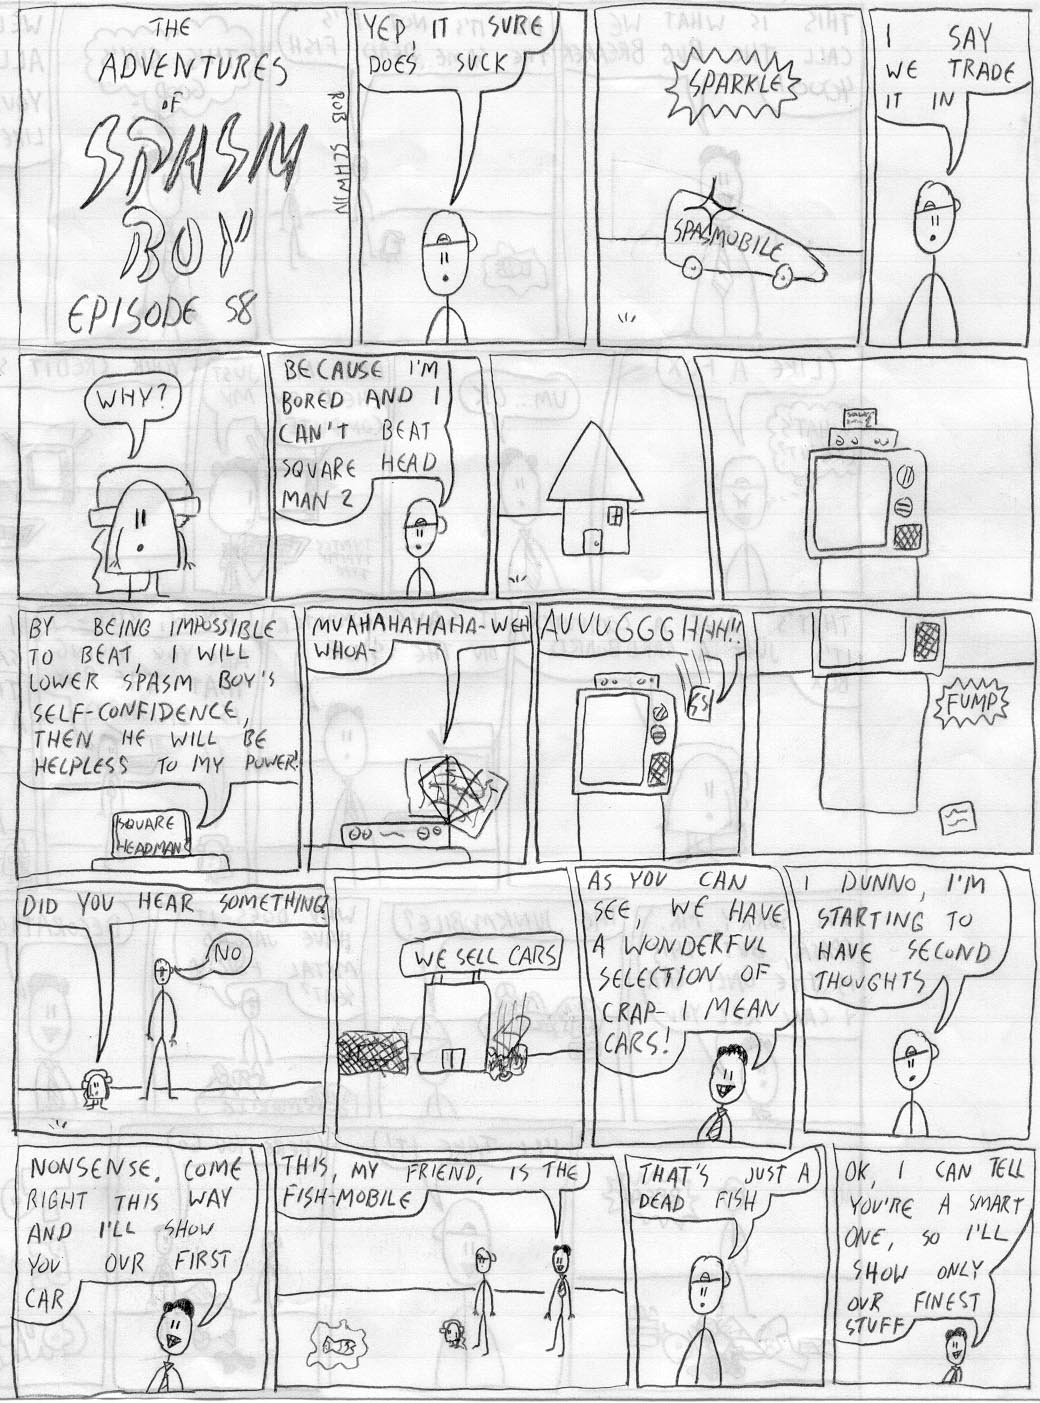 THE
ADVENTURES
OF
SPASM
BOY
EPISODE 58
ROB SCHWIN
YEP, IT SURE
DOES SUCK
SPARKLE
SPASMOBILE
I SAY
WE TRADE
IT IN
WHY?
BECAUSE I'M
BORED AND I
CAN'T BEAT
SQUARE HEAD
MAN 2
BY BEING IMPOSSIBLE
TO BEAT, I WILL
LOWER SPASM BOY'S
SELF-CONFIDENCE,
THEN HE WILL BE
HELPLESS TO MY POWER!
SQUARE
HEADMAN
MUAHAHAHAHA-WEH
WHOA-
AUUUGGGHHH!!
FUMP
DID YOU HEAR SOMETHING?
NO
WE SELL CARS
AS YOU CAN
SEE, WE HAVE
A WONDERFUL
SELECTION OF
CRAP- I MEAN
CARS!
I DUNNO, I'M
STARTING TO
HAVE SECOND
THOUGHTS
NONSENSE. COME
RIGHT THIS WAY
AND I'LL SHOW
YOU OUR FIRST
CAR
THIS, MY FRIEND, IS THE
FISH-MOBILE
THAT'S JUST A
DEAD FISH
OK, I CAN TELL
YOU'RE A SMART
ONE, SO I'LL
SHOW ONLY
OUR FINEST
STUFF